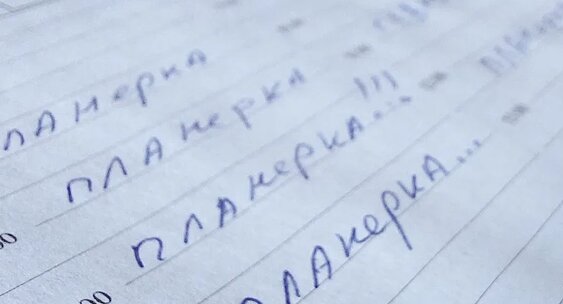 планерка
планерка
планерка...!!!
планерка...